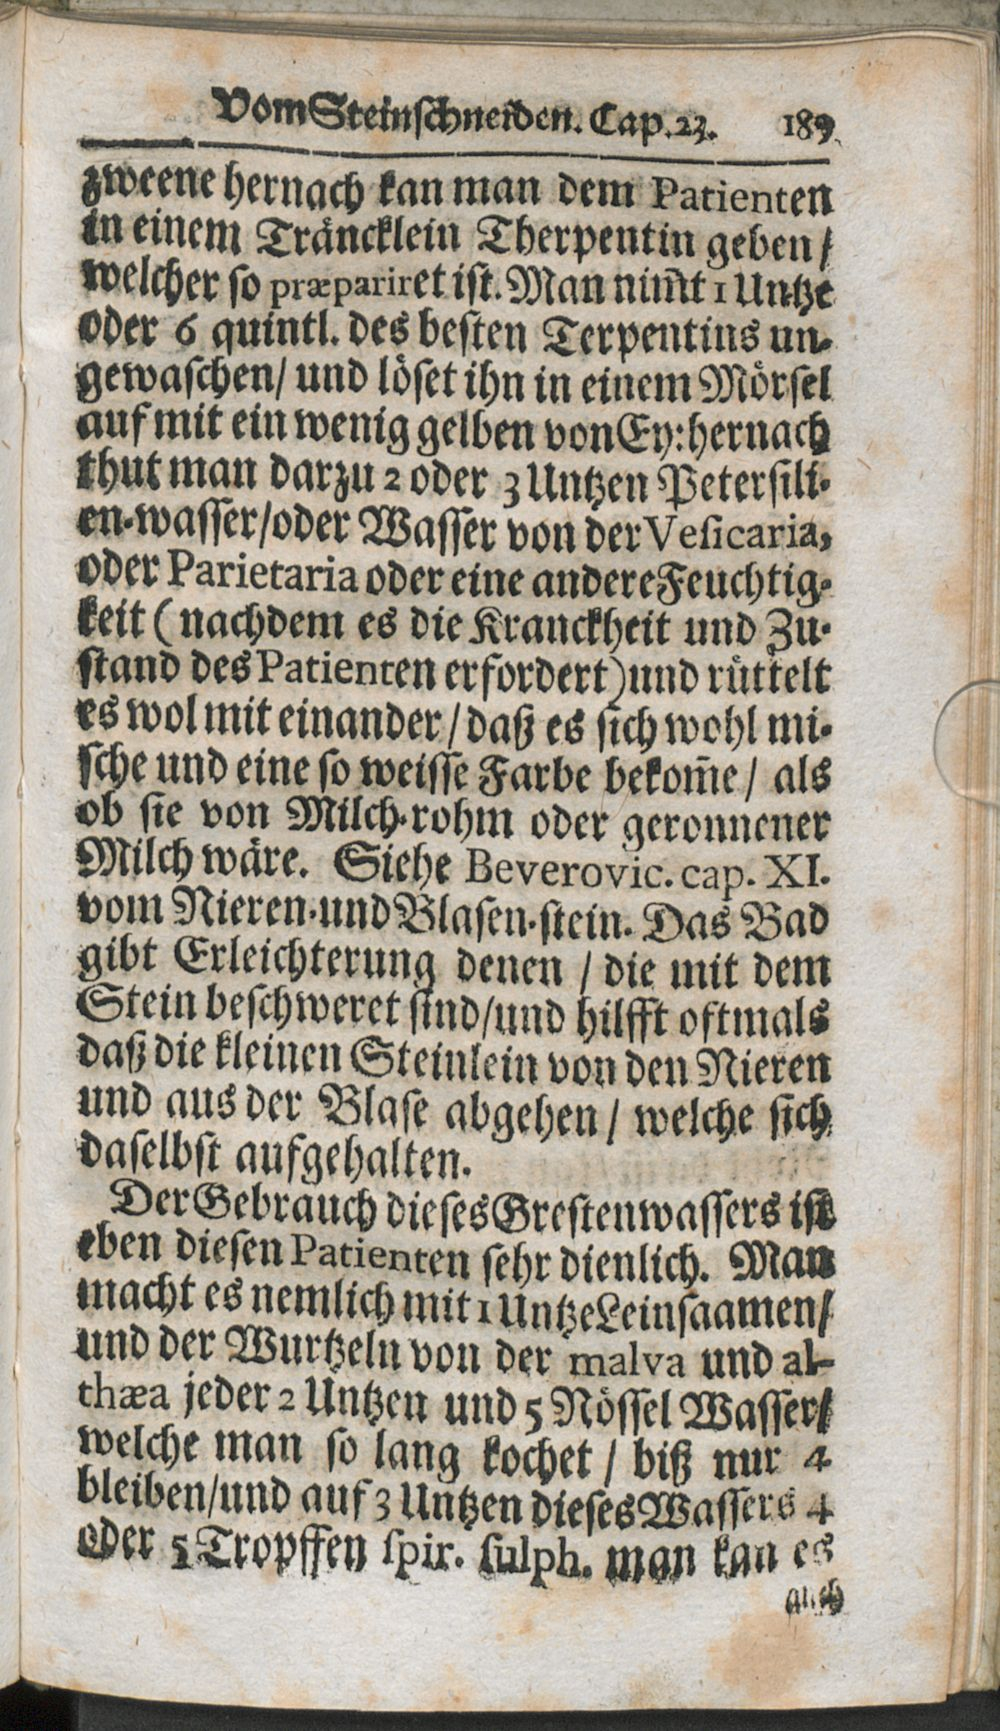 Vom Steinschneiden. Cap. 23. 189
zweene hernach kan man dem Patienten
in einem Träncklein Therpentin geben /
welcher so præpariret ist. Man nim̃t 1 Untze
oder 6 quintl. des besten Terpentins un-
gewaschen / und löset ihn in einem Mörsel
auf mit ein wenig gelben von Ey: hernach
thut man darzu 2 oder 3 Untzen Petersili-
en-wasser / oder Wasser von der Vesicaria,
oder Parietaria oder eine andere Feuchtig-
keit ( nachdem es die Kranckheit und Zu-
stand des Patienten erfordert ) und rüttelt
es wol mit einander / daß es sich wohl mi-
sche und eine so weisse Farbe bekom̃e / als
ob sie von Milch-rohm oder geronnener
Milch wäre. Siehe Beverovic. cap. XI.
vom Nieren-und Blasen-stein. Das Bad
gibt Erleichterung denen / die mit dem
Stein beschweret sind / und hilfft oftmals
daß die kleinen Steinlein von den Nieren
und aus der Blase abgehen / welche sich
daselbst aufgehalten.
Der Gebrauch dieses Grestenwassers ist
eben diesen Patienten sehr dienlich. Man
macht es nemlich mit 1 Untze Leinsaamen /
und der Wurtzeln von der malva und al-
thæa jeder 2 Untzen und 5 Nössel Wasser /
welche man so lang kochet / biß nur 4
bleiben / und auf 3 Untzen dieses Wassers 4
oder 5 Tropffen spir. sulph. man kan es
auch